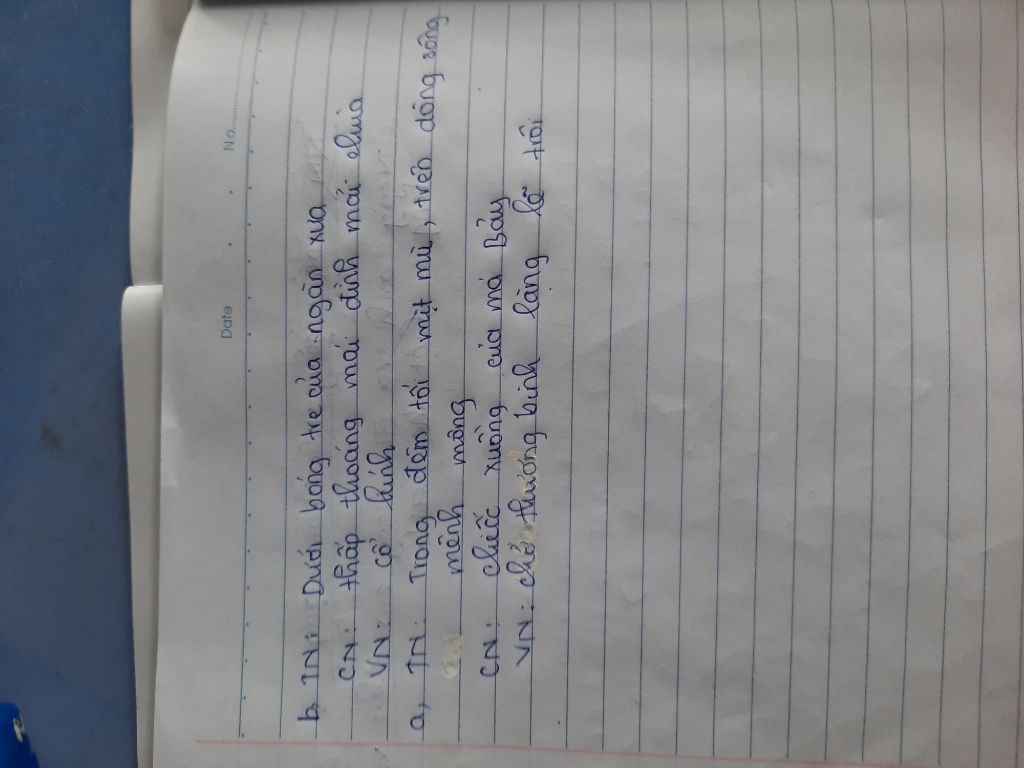 Date No.
b, TN: Dưới bóng tre của ngàn xưa
CN: thấp thoáng mái đình mái chùa
VN: cổ kính
a, TN: Trong đêm tối mịt mù, trên dòng sông
mênh mông
CN: chiếc xuồng của má Bảy
VN: chở thương binh lặng lẽ trôi